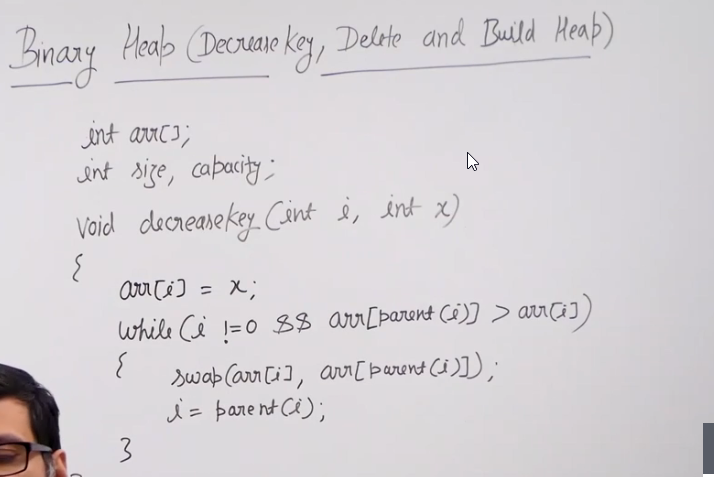 Binary Heap (Decrease Key, Delete and Build Heap)
int arr[];
int size, capacity;
void decreaseKey(int i, int x)
{
arr[i] = x;
while(i !=0 && arr[parent(i)] > arr[i])
{
swap(arr[i], arr[parent(i)]);
i = parent(i);
}